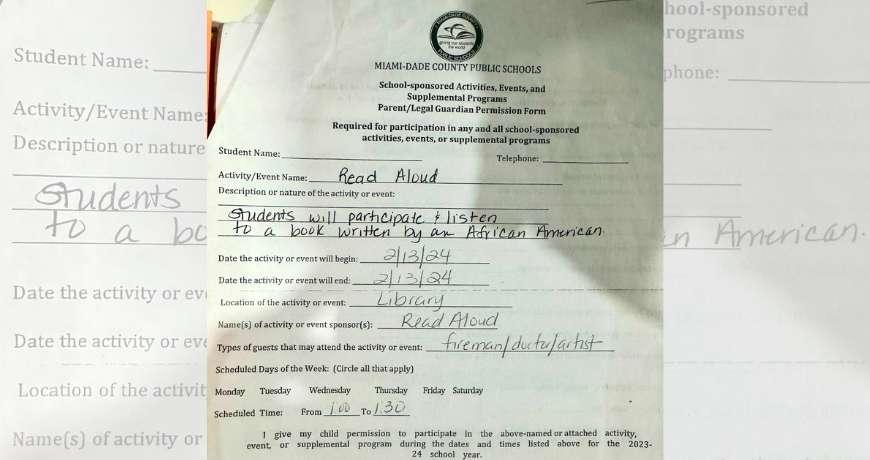 MIAMI-DADE COUNTY PUBLIC SCHOOLS
giving our students the world
MIAMI-DADE COUNTY PUBLIC SCHOOLS
School-sponsored Activities, Events, and
Supplemental Programs
Parent/Legal Guardian Permission Form
Required for participation in any and all school-sponsored
activities, events, or supplemental programs
Student Name:
Telephone:
Activity/Event Name: Read Aloud
Description or nature of the activity or event:
Students will participate & listen
to a book written by an African American.
Date the activity or event will begin: 2/13/24
Date the activity or event will end: 2/13/24
Location of the activity or event: Library
Name(s) of activity or event sponsor(s): Read Aloud
Types of guests that may attend the activity or event: fireman/doctor/artist
Scheduled Days of the Week: (Circle all that apply)
Monday Tuesday Wednesday Thursday Friday Saturday
Scheduled Time: From 1:00 To 1:30
I give my child permission to participate in the above-named or attached activity,
event, or supplemental program during the dates and times listed above for the 2023-
24 school year.
Student Name:
Activity/Event Name:
Description or nature
Students
to a bo
Date the activity or ev
Date the activity or eve
Location of the activit
Name(s) of activity or
hool-sponsored
rograms
phone:
n American.